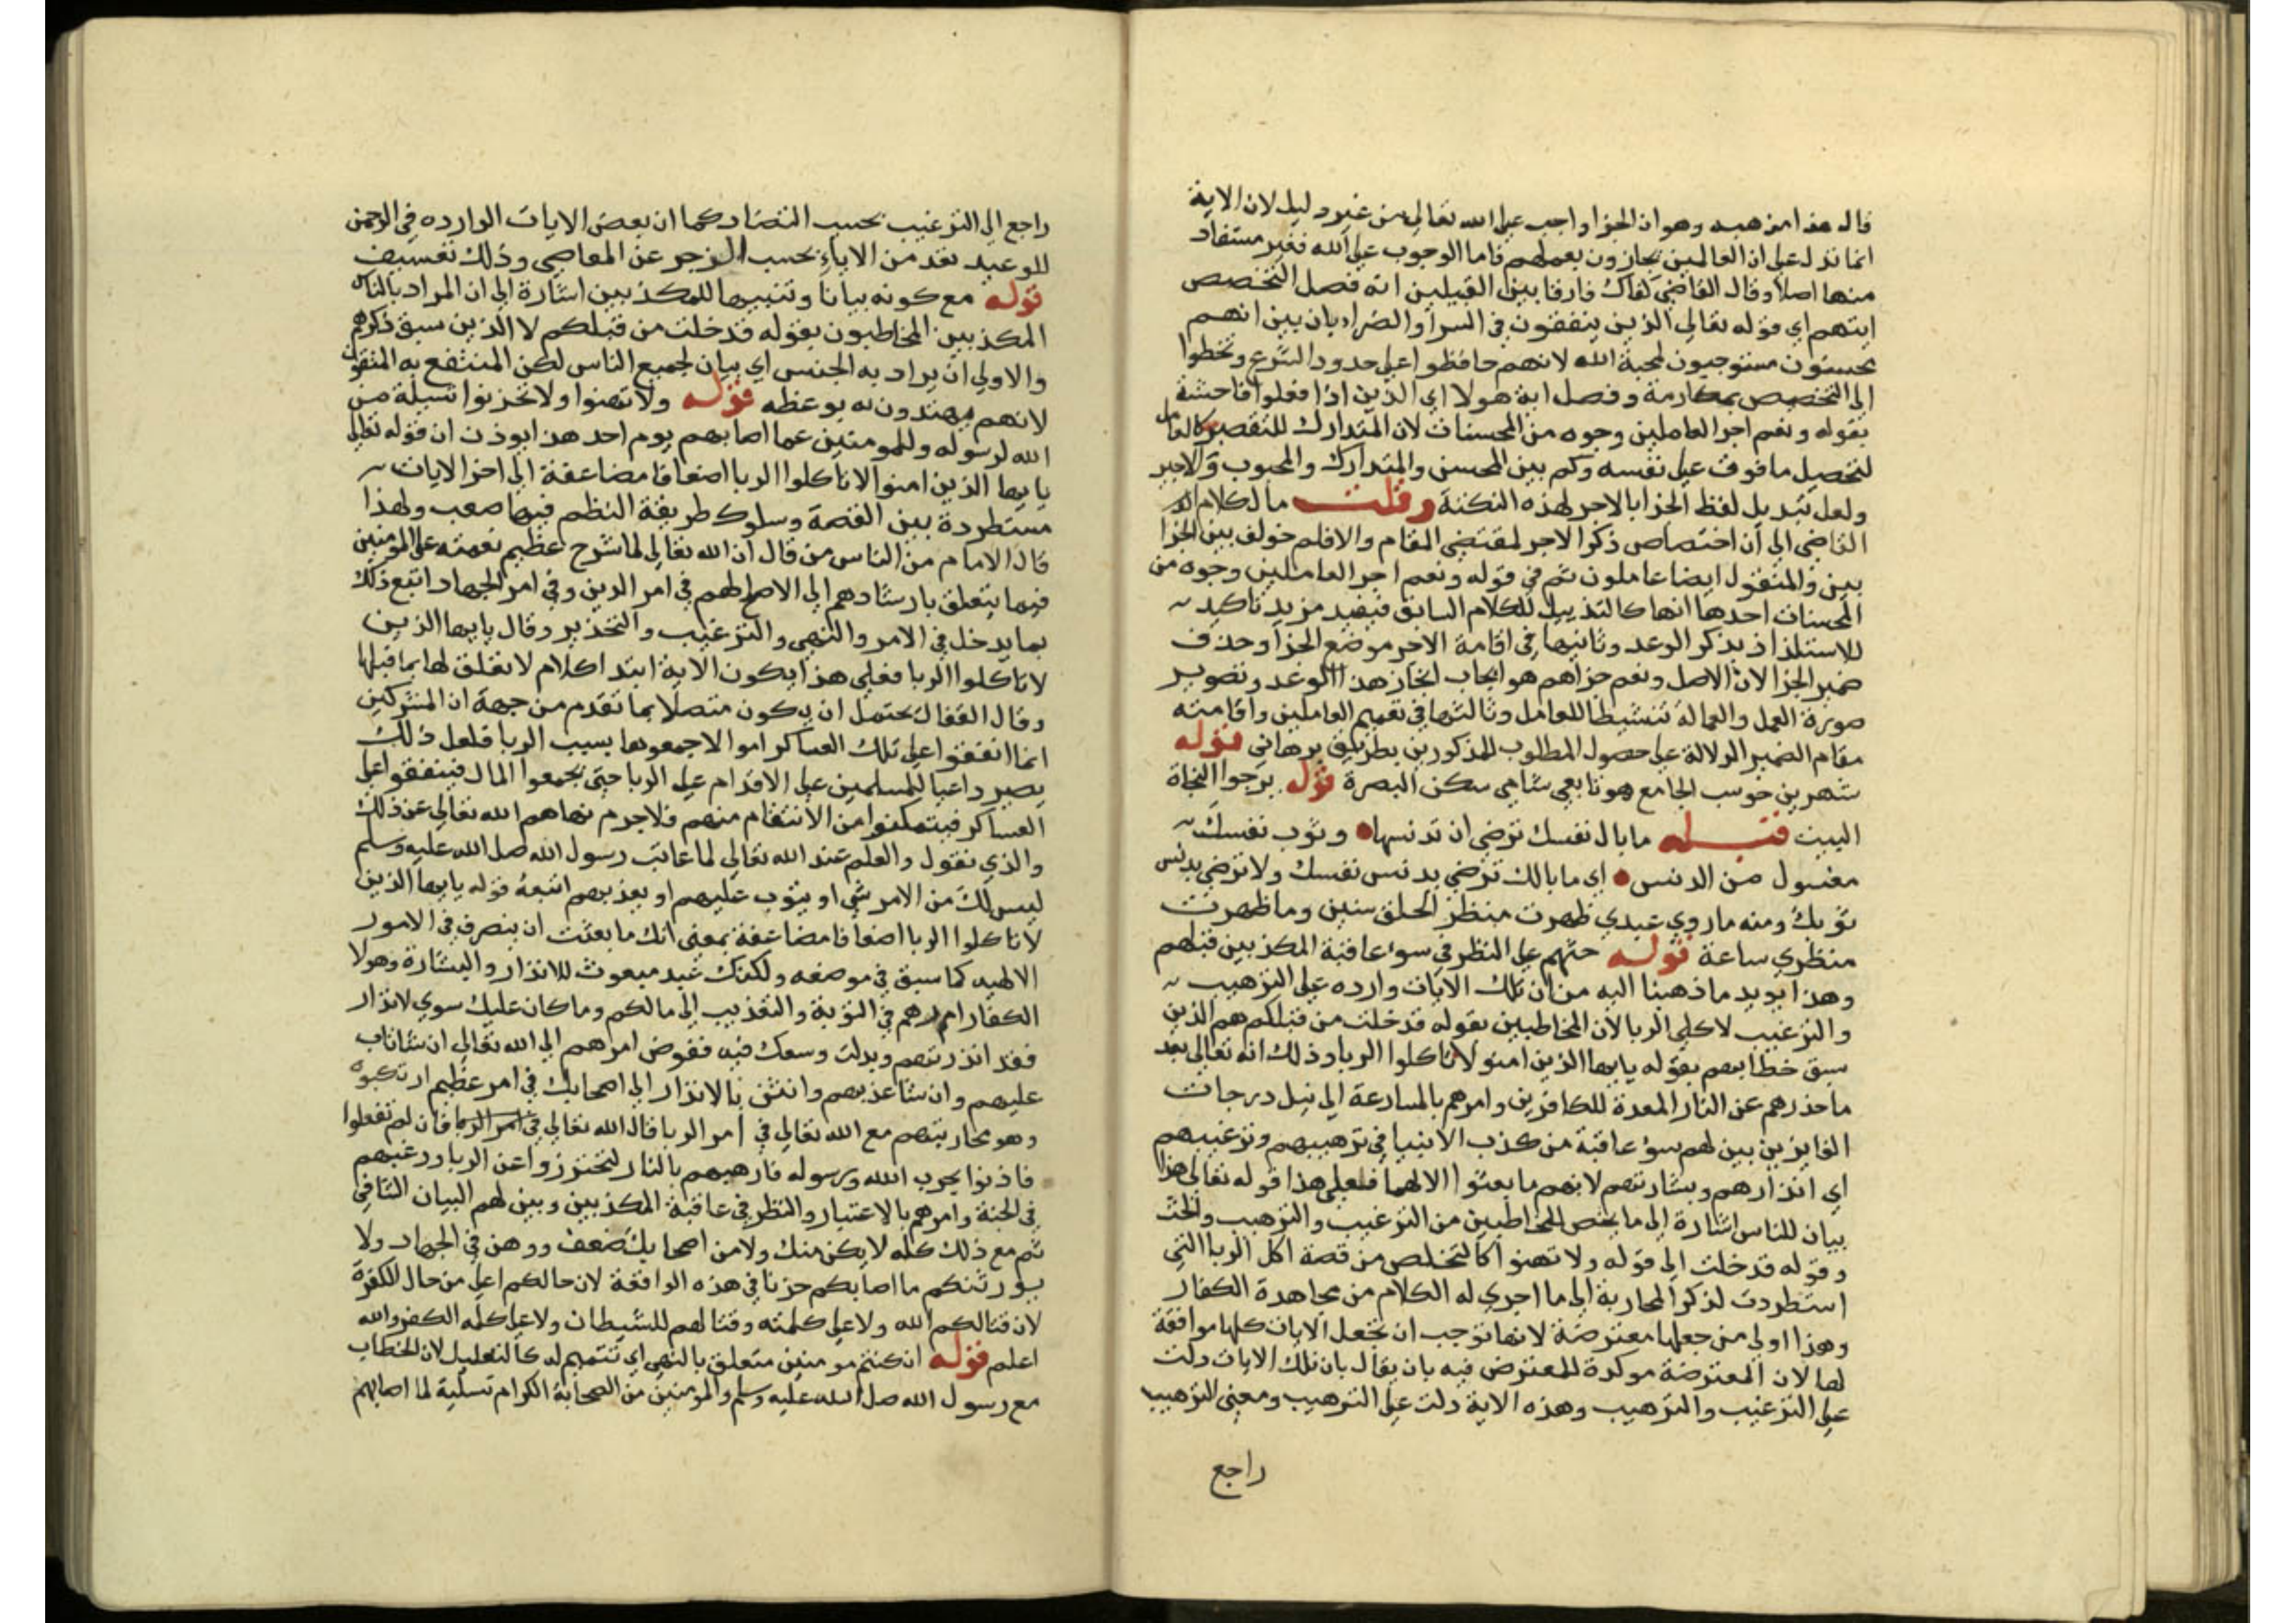 قال هذا مذهبه وهو ان الجزا واجب على الله تعالى من غير دليل لان الاية
انما تدل على ان العالمين يجازون بعملهم فاما الوجوب على الله فغير مستفاد
منها اصلا وقال القاضي كفاك فارقا بين القبيلين انه فصل التخصص
ايتهم اي قوله تعالى الذين ينفقون في السرا والضراء بان بين انهم
محسنون مستوجبون لمحبة الله لانهم حافظوا على حدود الشرع وتخطوا
الى التخصص بمكارمه وفصل اية هولا اي الذين اذا فعلوا فاحشة
بقوله ونعم اجر العاملين وجوه من المحسنات لان المتدارك للتقصير كالعامل
لتحصيل ما فوت على نفسه وكم بين المحسن والمتدارك والمحبوب والاجير
ولعل تبديل لفظ الجزا بالاجر لهذه النكتة وقلت مال كلام
القاضي الى ان اختصاص ذكر الاجر لمقتضى المقام والا فلم خولف بين الجزا
بين والمتقول ايضا عاملون ثم في قوله ونعم اجر العاملين وجوه من
المحسنات احدها انها كالتذييل للكلام السابق فيفيد مزيد تاكيد
للاستلذاذ بذكر الوعد وثانيها في اقامة الاجر موضع الجزا وحذف
ضمير الجزا لان الاصل ونعم جزاهم هو ايجاب انجاز هذا الوعد وتصوير
صورة العمل والعمالة تنشيطا للعامل وثالثها في تعميم العاملين واقامته
مقام الضمير الدلالة على حصول المطلوب للمذكورين بطريق برهاني قوله
شهر بن حوسب الجامع هو تابعي شامي سكن البصرة قوله يرجوا النجاة
البيت قبله ما بال نفسك ترضى ان تدنسها وثوب نفسك
مغسول من الدنس اي ما بالك ترضى بدنس نفسك ولا ترضى بدنس
ثوبك ومنه ما روي عبدي ظهرت منظر الخلق سنين وما ظهرت
منظري ساعة قوله حثهم على النظر في سوء عاقبة المكذبين قبلهم
وهذا يويد ما ذهبنا اليه من ان تلك الايات وارده على الترهيب
والترغيب لاكلي الربا لان المخاطبين بقوله قد خلت من قبلكم هم الذين
سبق خطابهم بقوله يايها الذين امنو لا تاكلوا الربا وذلك انه تعالى بعد
ما حذرهم عن النار المعدة للكافرين وامرهم بالمسارعة الى نيل درجات
الفايزين بين لهم سوء عاقبة من كذب الانبيا في ترهيبهم وترغيبهم
اي انذارهم وبشارتهم لانهم ما بعثوا الا لهما فلعلى هذا قوله تعالى هذا
بيان للناس اشارة الى ما يخص المخاطبين من الترغيب والترهيب والحث
وقوله قد خلت الى قوله ولا تهنوا كالتخلص من قصة اكل الربا التي
استطردت لذكر المحاربة الى ما اجري له الكلام من مجاهدة الكفار
وهذا اولى من جعلها معترضة لانها توجب ان تجعل الايات كلها موافقة
لها لان المعترضة موكدة للمعترض فيه بان يقال بان تلك الايات دلت
على الترغيب والترهيب وهذه الاية دلت على الترهيب ومعنى الترهيب
راجع
راجع الى الترغيب بحسب التضاد كما ان بعض الايات الوارده في الرحمن
للوعيد تعد من الالاء بحسب الزجر عن المعاصي وذلك تعسيف
قوله مع كونه بيانا وتنبيها للمكذبين اشارة الى ان المراد بالناس
المكذبين المخاطبون بقوله قد خلت من قبلكم لا الذين سبق ذكرهم
والاولى ان يراد به الجنس اي بيان لجميع الناس لكن المنتفع به المتقون
لانهم يهتدون به بوعظه قوله ولا تهنوا ولا تحزنوا تسلية من
الله لرسوله وللمومنين عما اصابهم يوم احد هذا يوذن ان قوله تعالى
يايها الذين امنوا لا تاكلوا الربا اضعافا مضاعفة الى اخر الايات
مستطردة بين القصة وسلوك طريقة النظم فيها صعب ولهذا
قال الامام من الناس من قال ان الله تعالى لما شرح عظيم نعمته على المومنين
فيما يتعلق بارشادهم الى الاصلح لهم في امر الدين وفي امر الجهاد اتبع ذلك
بما يدخل في الامر والنهي والترغيب والتحذير وقال يايها الذين
لا تاكلوا الربا فعلى هذا يكون الاية ابتدا كلام لا تعلق لها بما قبلها
وقال القفال يحتمل ان يكون متصلا بما تقدم من جهة ان المشركين
انما انفقوا على تلك العساكر اموالا جمعوها بسبب الربا فلعل ذلك
يصير داعيا للمسلمين على الاقدام على الربا حتى يجمعوا المال فينفقوا على
العساكر فيتمكنوا من الانتقام منهم فلا جرم نهاهم الله تعالى عن ذلك
والذي نقول والعلم عند الله تعالى لما عاتب رسول الله صلى الله عليه وسلم
ليس لك من الامر شي او يتوب عليهم او يعذبهم اتبعه قوله يايها الذين
لا تاكلوا الربا اضعافا مضاعفة بمعنى انك ما بعثت ان يتصرف في الامور
الالهيه كما سبق في موضعه ولكنك عبد مبعوث للانذار والبشارة وهولا
الكفار امرهم في التوبة والتعذيب الى مالكم وما كان عليك سوى لانذار
فقد انذرتهم وبذلت وسعك فيه ففوض امرهم الى الله تعالى ان شا تاب
عليهم وان شا عذبهم وانثن بالانذار الى اصحابك في امر عظيم ارتكبوه
وهو محاربتهم مع الله تعالى في امر الربا قال الله تعالى في امر الربا فان لم تفعلوا
فاذنوا بحرب الله ورسوله فارهبهم بالنار لتحترزوا عن الربا ورغبهم
في الجنة وامرهم بالاعتبار والنظر في عاقبة المكذبين وبين لهم البيان الشافي
ثم مع ذلك كله لا يكن منك ولا من اصحابك ضعف ووهن في الجهاد ولا
يورثنكم ما اصابكم حزنا في هذه الواقعة لان حالكم اعلى من حال الكفرة
لان قتالكم لله ولاعلى كلمته وقتالهم للشيطان ولاعلى كلمه الكفر والله
اعلم قوله ان كنتم مومنين متعلق بالنهي اي تتميم له كالتعليل لان الخطاب
مع رسول الله صلى الله عليه وسلم والمومنين من الصحابة الكرام تسلية لما اصابهم